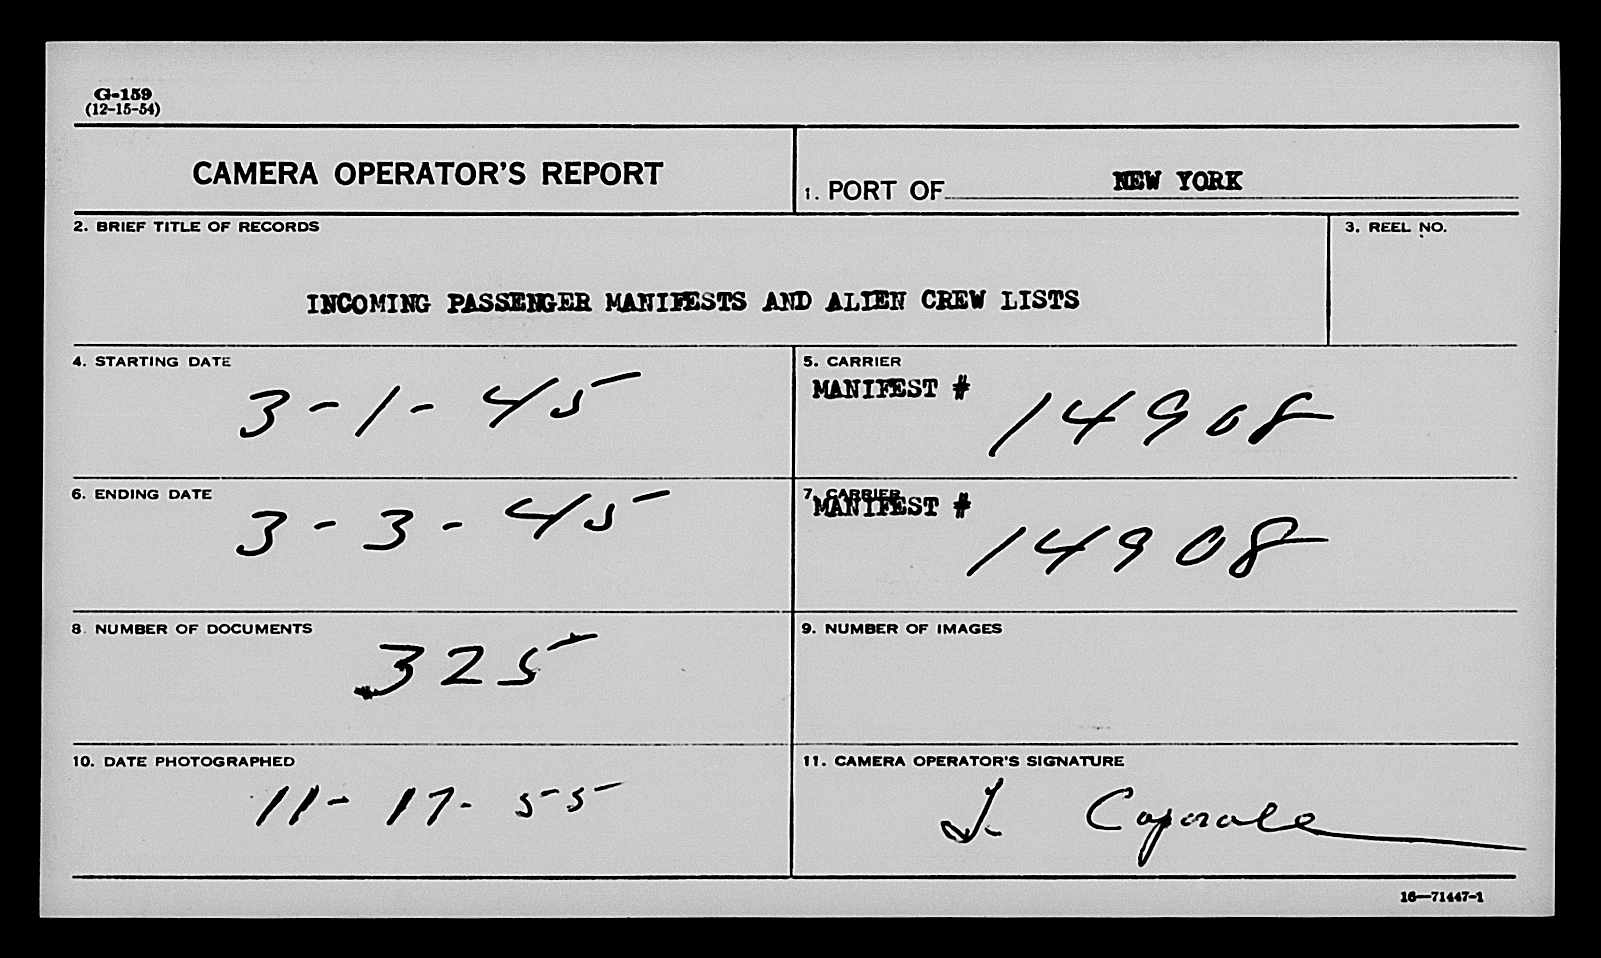 G-159
(12-15-54)
CAMERA OPERATOR'S REPORT
1. PORT OF NEW YORK
2. BRIEF TITLE OF RECORDS
3. REEL NO.
INCOMING PASSENGER MANIFESTS AND ALIEN CREW LISTS
4. STARTING DATE
3-1-45
5. CARRIER
MANIFEST # 14908
6. ENDING DATE
3-3-45
7. CARRIER
MANIFEST # 14908
8. NUMBER OF DOCUMENTS
325
9. NUMBER OF IMAGES
10. DATE PHOTOGRAPHED
11-17-55
11. CAMERA OPERATOR'S SIGNATURE
Caporale
16—71447-1